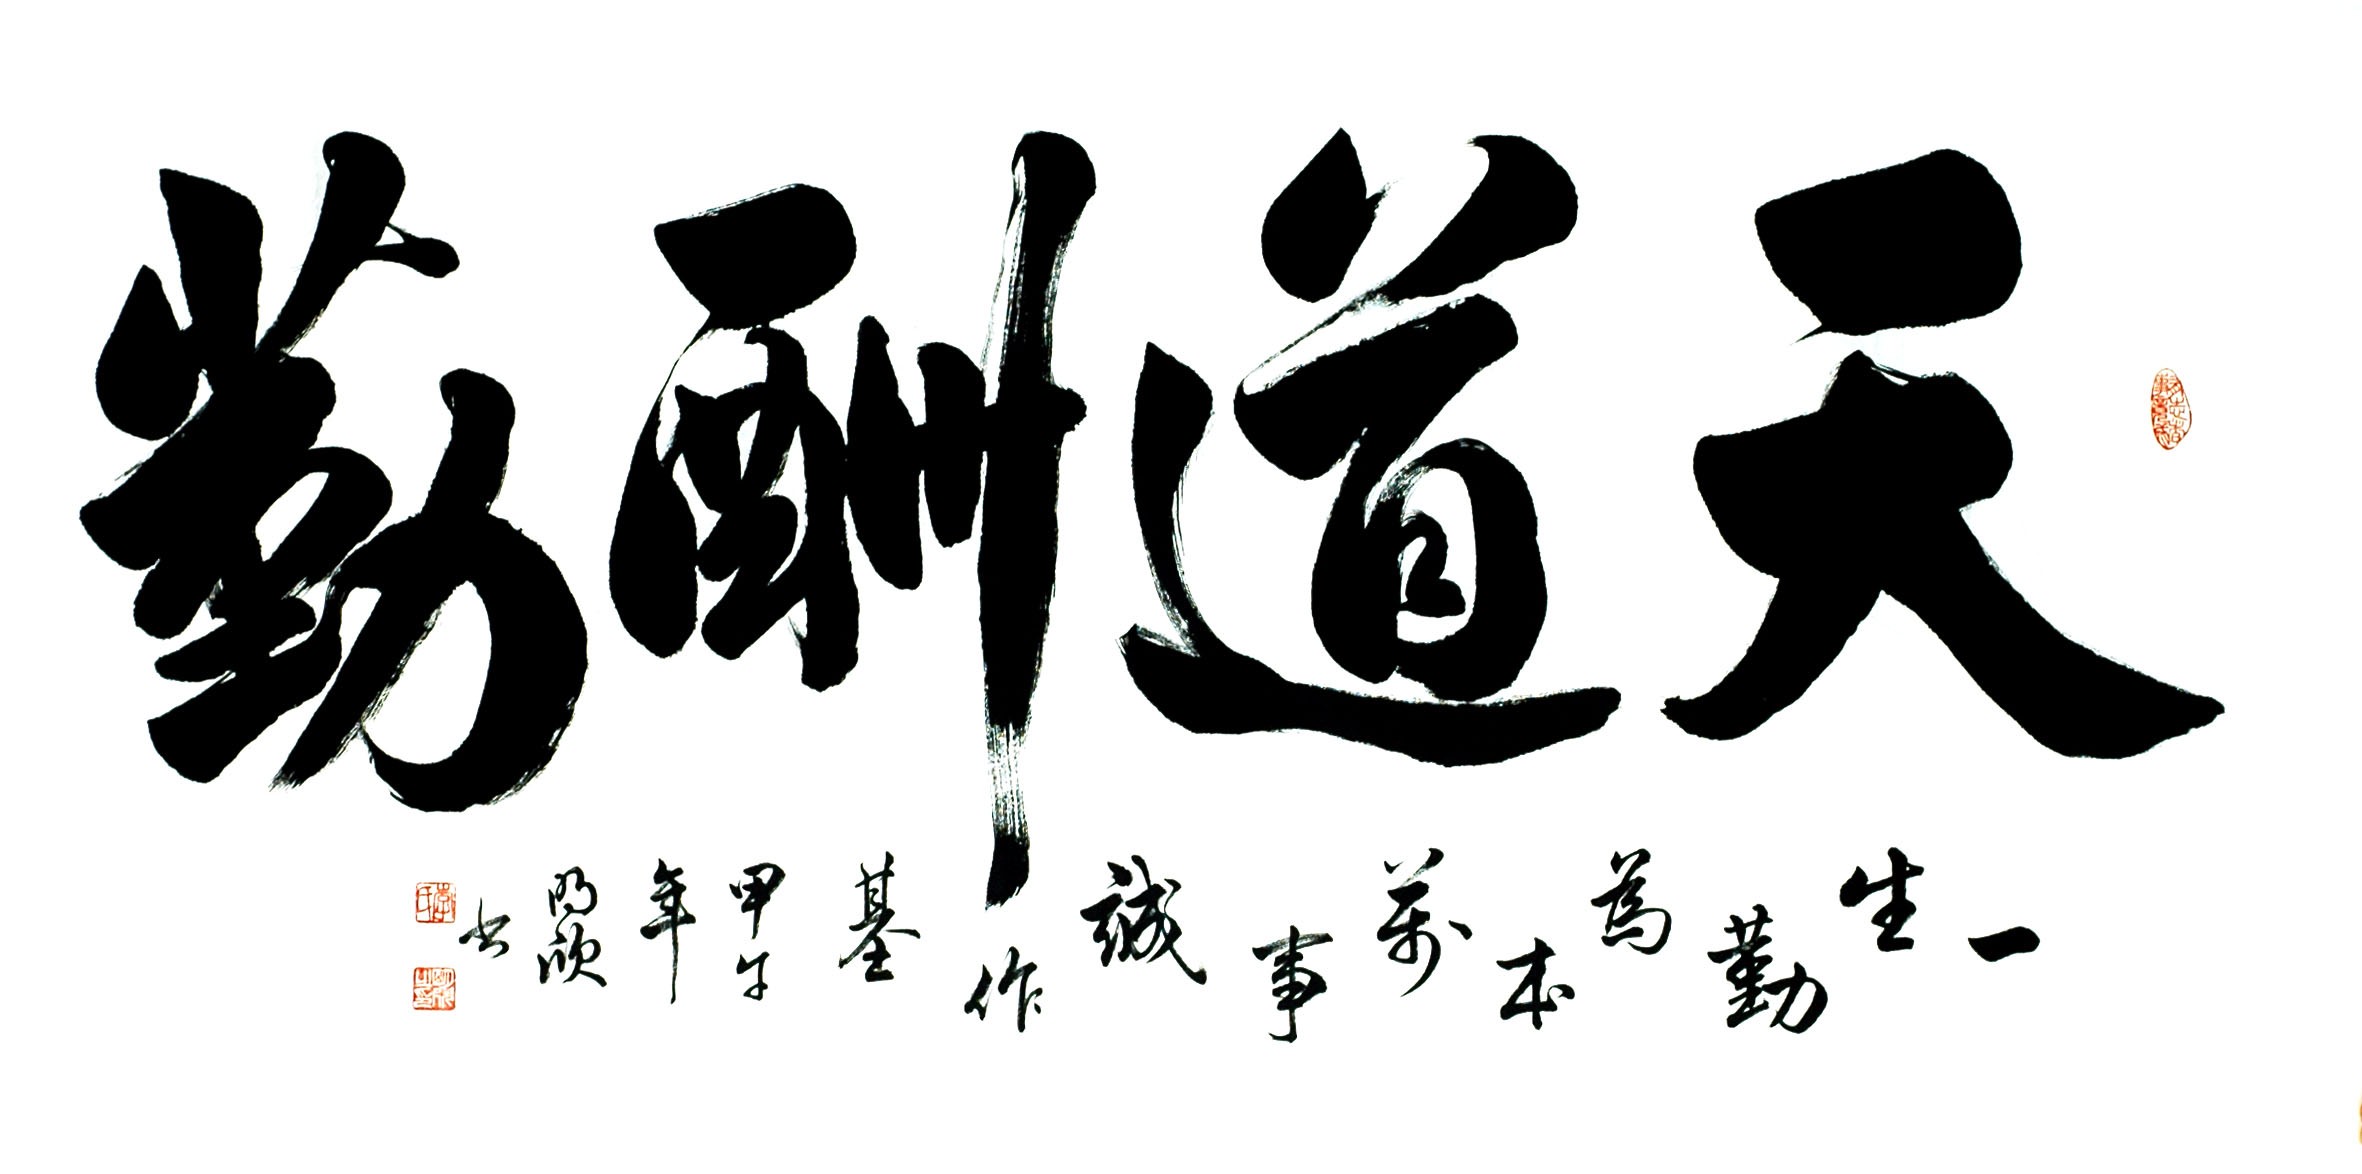 天道酬勤
一生勤為本萬事誠作基甲午年明欣书